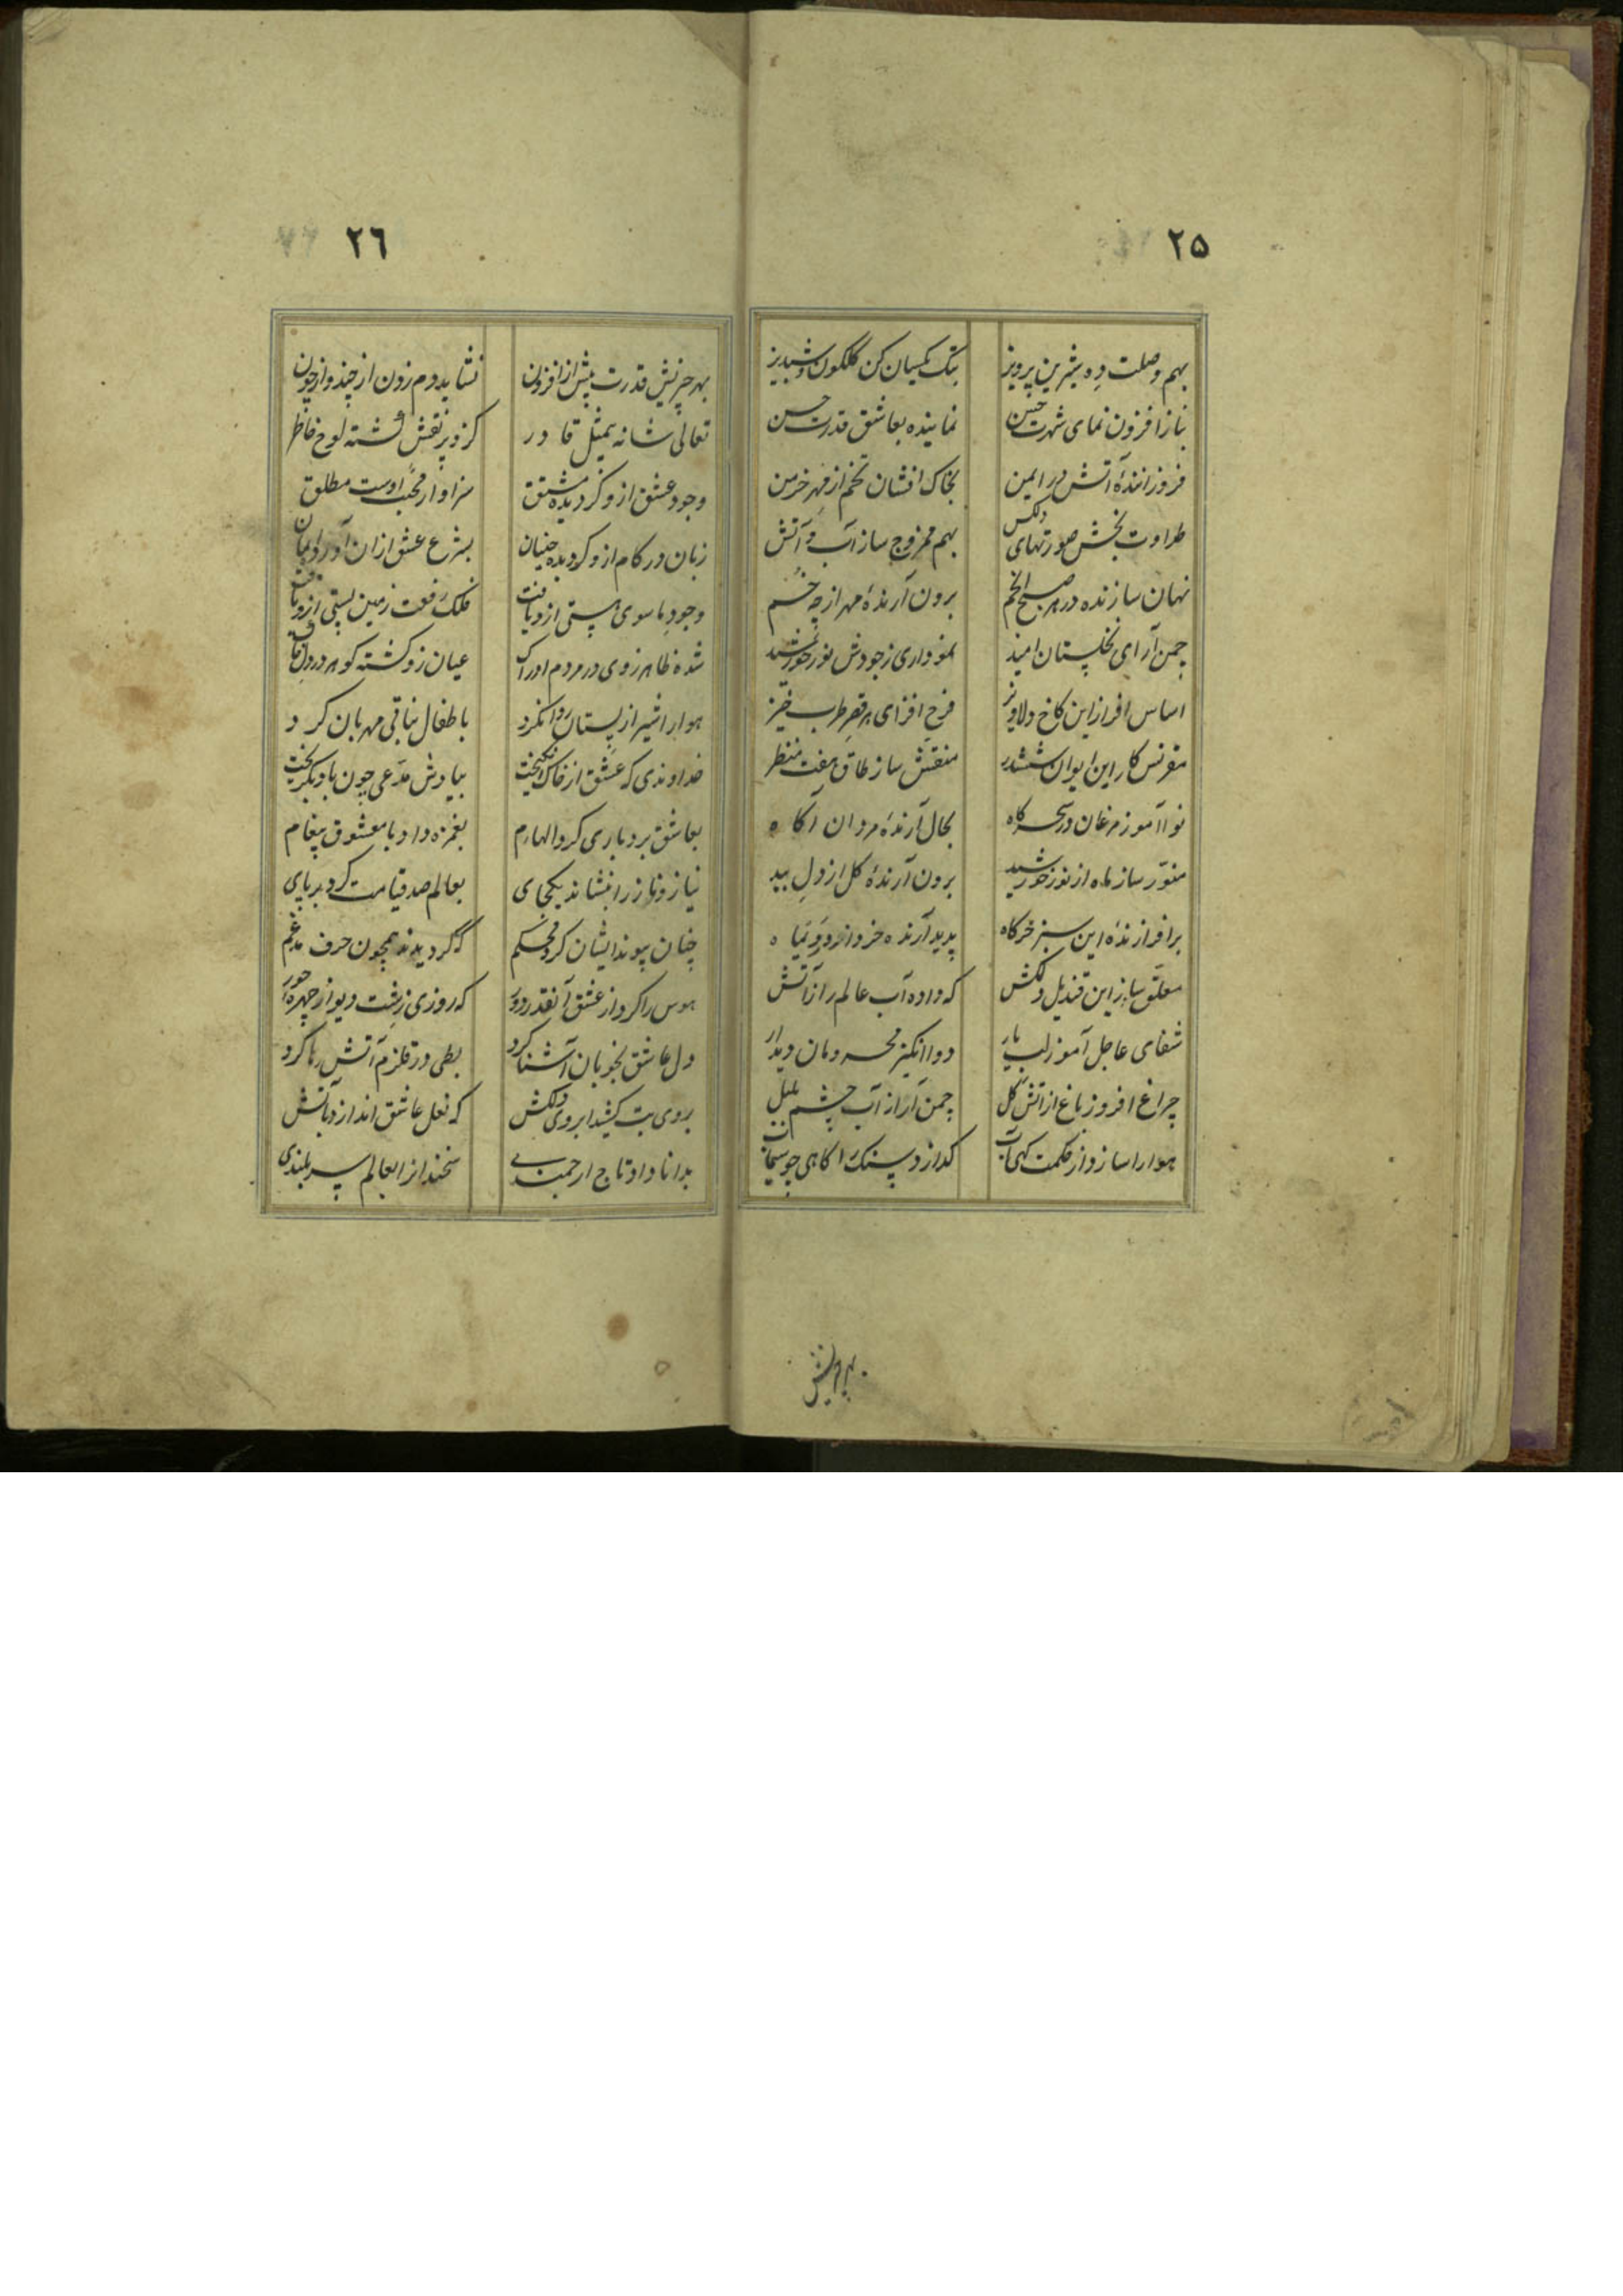 ٢٥
بهم وصلت ده شیرین پرویز بتک یکسان کن گلگون و شبدیز
بناز افزون نمای شهرت حسن نماینده بعاشق قدرت حسن
فروزانندهٔ آتش در ایمن بخاک افشان تخم از بهر خرمن
طراوت بخش صورتهای دلکش بهم ممزوج ساز آب و آتش
نهان سازنده در هر صبح انجم برون آرندهٔ مهر از چه خم
چمن آرای نخلستان امید نمو داری ز جودش نور خورشید
اساس افراز این کاخ دلاویز فرح افزای هر قصر طرب خیز
مقرنس کار این ایوان ششدر منقش ساز طاق هفت منظر
نوآآموز مرغان در سحرکاه بحال آرندهٔ مردان آکاه
منور ساز ماه از نور خورشید برون آرندهٔ کل از دل بید
برافرازندهٔ این سبز خرکاه پدید آرنده خز و از
معلق ساز این قندیل دلکش که داده آب عالم را ز آتش
شفای عاجل آموز لب یار دوا انکیز محرومان دیدار
چراغ افروز باغ از آتش کل چمن آرا از آب چشم بلبل
هوا را سازد از حکمت کهی آب کدازد سنک را کاهی چو سیماب
بهر
٢٦
بهر چیزیش قدرت بیش از افزون نشاید دم زدن از چند و از چون
تعالی شانه بیمثل قادر کزو پر نقش کشته لوح خاطر
وجود عشق ازو کردیده مشتق سزاوار محبت اوست مطلق
زبان در کام ازو کردیده جنبان بشرع عشق ازان آورد ایمان
وجود ما سوی هستی ازو یافت فلک رفعت زمین پستی ازو یافت
شده ظاهر ز وی در مردم ادراک عیان زو کشته کوهر در دل
هوا را شیر از پستان روان کرد باطفال نباتی مهربان کرد
خداوندی که عشق از خاک انکیخت بیادش مدعی چون باد بکریخت
بعاشق بردباری کرد الهام بغمزه داد با معشوق پیغام
نیاز و ناز را بنشاند یکجای بعالم صد قیامت کرد برپای
چنان پیوند ایشان کرد محکم که کردیدند همچون حرف مدغم
هوس را کرد از عشق آنقدر دور که روزی زشت دیو از چهرهٔ حور
دل عاشق بخوبان آشنا کرد بطی در قلزم آتش رها کرد
بروی بت کشید ابروی دلکش که نعل عاشق اندازد بآتش
بدانا داد تاج ارجمندی سخن را از عالم سربلندی